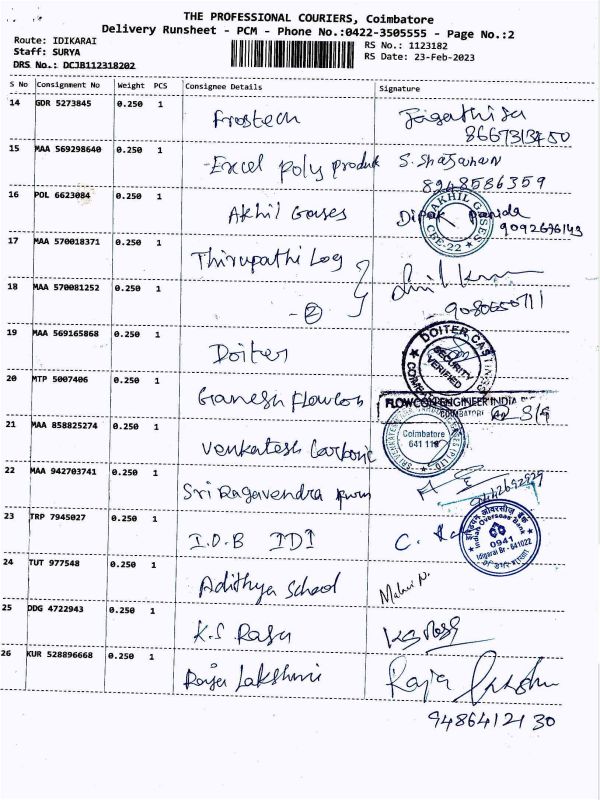 THE PROFESSIONAL COURIERS, Coimbatore
Delivery Runsheet - PCM - Phone No.:0422-3505555 - Page No.:2
Route: IDIKARAI
Staff: SURYA
DRS No.: DCJB112318202
RS No.: 1123182
RS Date: 23-Feb-2023
S No Consignment No Weight PCS Consignee Details Signature
14 GDR 5273845 0.250 1 Frostech
15 MAA 569298640 0.250 1 Excel poly produk S. Shajahan
8948586359
16 POL 6623084 0.250 1 Akhil Gases Dipak
AKHIL GASES
CBE-22
9092676143
17 MAA 570018371 0.250 1 Thirupathi Log
18 MAA 570081252 0.250 1 - 2
19 MAA 569165868 0.250 1 Doiter
DOITER CAS
SECURITY
VERIFIED
20 MTP 5007406 0.250 1 Ganesh Flowcon
FLOWCON ENGINEER INDIA
COIMBATORE
21 MAA 858825274 0.250 1 Venkatesh Carbonic
Coimbatore
641 110
22 MAA 942703741 0.250 1 Sri Ragavendra
23 TRP 7945027 0.250 1 I.O.B IDI
इंडियन ओवरसीज़ बैंक
Indian Overseas Bank
0941
Idigarai Br - 641022
24 TUT 977548 0.250 1 Adithya School
25 DDG 4722943 0.250 1 K.S Raju
26 KUR 528896668 0.250 1 Raja Lakshmi Raja
9486412130